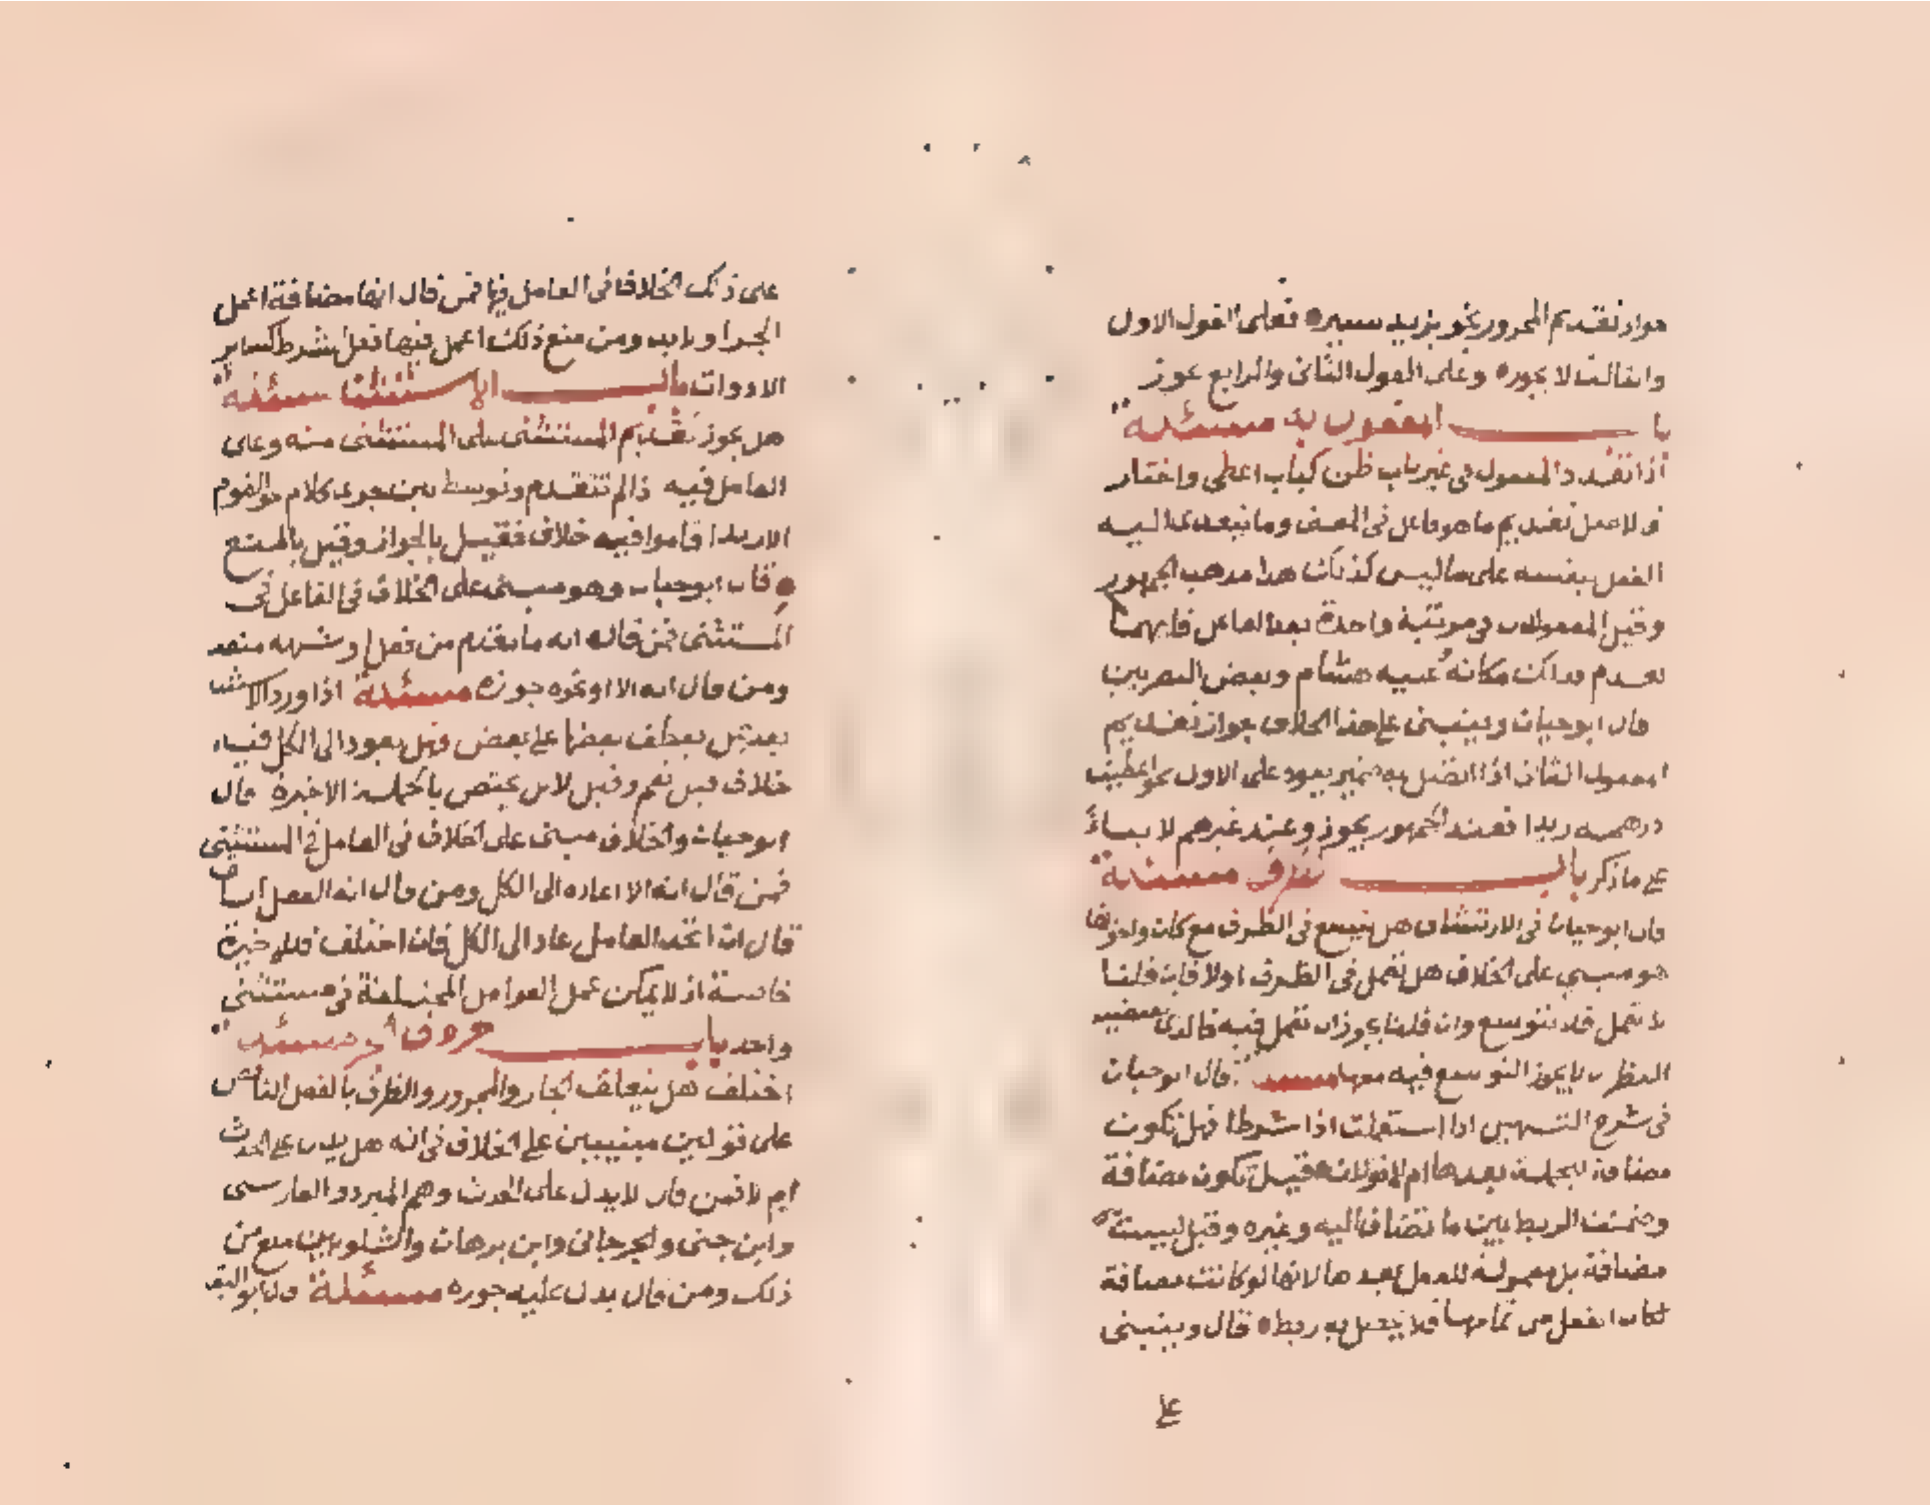 جواز تقديم المجرور نحو بزيد سير فعلى القول الاول
والثالث لا يجوز وعلى القول الثانى والرابع يجوز
باب المفعول به مسئلة
اذا تعدد المعمول فى غير باب ظن كباب اعطى واختار
فالاصل تقديم ما هو فاعل فى المعنى وما يتعدى اليه
الفعل بنفسه على ما ليس كذلك هذا مذهب الجمهور
وقيل المعمولات فى مرتبة واحدة بعد العامل فايهما
تقدم فذلك مكانه عليه هشام وبعض البصريين
قال ابو حيان وينبنى على هذا الخلاف جواز تقديم
المعمول الثانى اذا اتصل به ضمير يعود على الاول نحو اعطيت
درهمه زيدا فعند الجمهور يجوز وعند غيرهم لا بناءً
على ما ذكر باب الظرف مسئلة
قال ابو حيان فى الارتشاف هل يتسع فى الظرف مع كان واخواتها
هو مبنى على الخلاف هل تعمل فى الظرف اولا فان قلنا
لا تعمل فلا نتوسع وان قلنا يجوز ان تعمل فيه فالذى يقتضيه
النظر ان لا يجوز التوسع فيه معها مسئلة قال ابو حيان
فى شرح التسهيل اذا استعملت اذا شرطا فهل تكون
مضافة للجملة بعدها ام لا قولان قيل تكون مضافة
وضمنت الربط بين ما تضاف اليه وغيره وقيل ليست
مضافة بل معمولة للفعل بعدها لانها لو كانت مضافة
لكان الفعل من تمامها فلا يحصل به ربط قال وينبنى
على
على ذلك الخلاف فى العامل فيها فمن قال انها مضافة اعمل
الجزا ولابد ومن منع ذلك اعمل فيها فعل الشرط كساير
الادوات باب الاستثنا مسئلة
هل يجوز تقديم المستثنى على المستثنى منه وعلى
العامل فيه اذا لم تتقدم وتوسط بين جزءى كلام نحو القوم
الا زيدا قاموا فيه خلاف فقيل بالجواز وقيل بالمنع
قال ابو حيان وهو مبنى على الخلاف فى العامل فى
المستثنى فمن قال انه ما تقدم من فعل او شبهه منعه
ومن قال انه الا او نحوه جوزه مسئلة اذا ورد الاستثنا
بعد جمل بعطف بعضها على بعض فهل يعود الى الكل فيه
خلاف قيل نعم وقيل لا بل يختص بالجملة الاخيرة قال
ابو حيان والخلاف مبنى على الخلاف فى العامل فى المستثنى
فمن قال انه الا اعاده الى الكل ومن قال انه الفعل السابق
قال ان اتحد العامل عاد الى الكل فان اختلف فللاخيرة
خاصة اذ لا يمكن عمل العوامل المختلفة فى مستثنى
واحد باب حروف الجر مسئلة
اختلف هل يتعلق الجار والمجرور والظرف بالفعل الناقص
على قولين مبنيين على الخلاف فى انه هل يدل على الحدث
ام لا فمن قال لا يدل على الحدث وهم المبرد والفارسى
وابن جنى والجرجانى وابن برهان والشلوبين منع من
ذلك ومن قال يدل عليه جوزه مسئلة قال ابو البقا